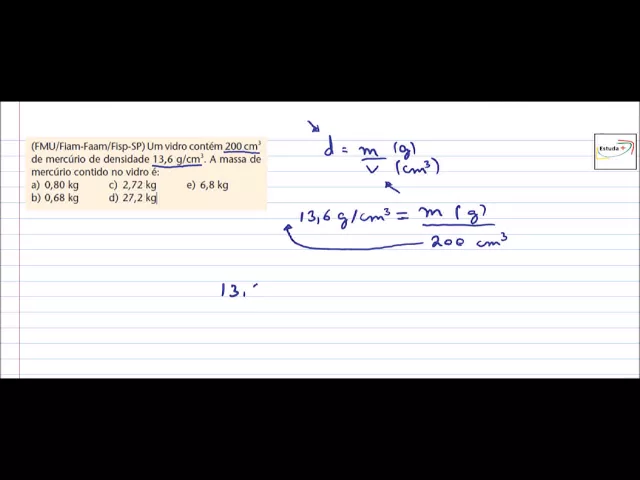 (FMU/Fiam-Faam/Fisp-SP) Um vidro contém 200 cm³
de mercúrio de densidade 13,6 g/cm³. A massa de
mercúrio contido no vidro é:
a) 0,80 kg c) 2,72 kg e) 6,8 kg
b) 0,68 kg d) 27,2 kg
d = m (g)
v (cm³)
Estuda +
13,6 g/cm³ = m (g)
200 cm³
13,